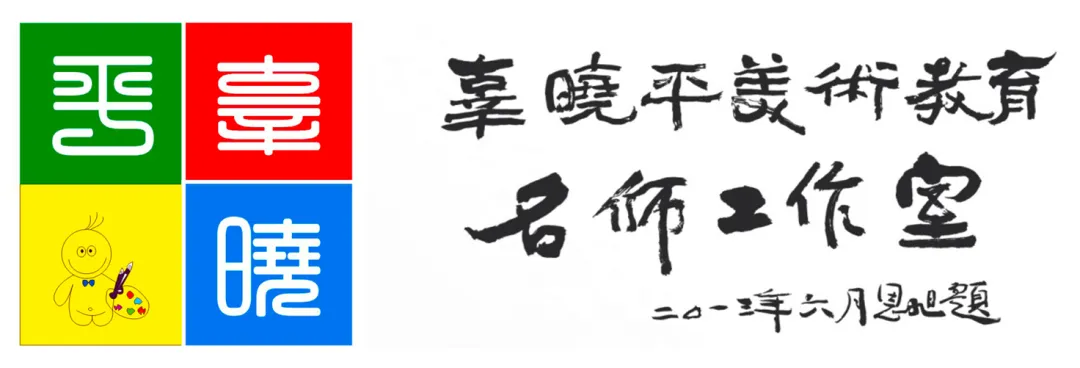 辜曉
平
辜曉平美術教育
名師工作室
二〇一三年六月恩旭題